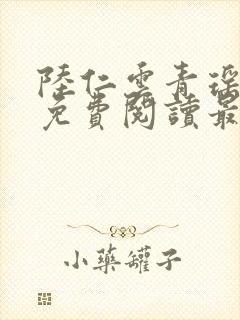 陸仁雲青瑤
免費閱讀最
小藥罐子